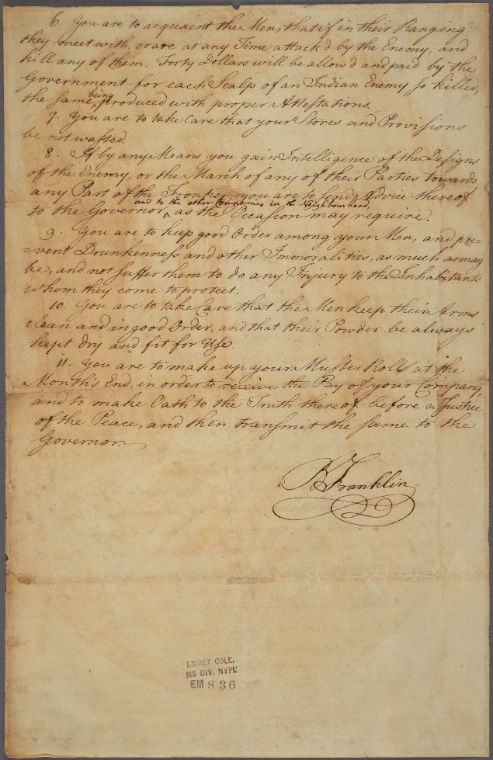 6. You are to acquaint the Men, that if in their Ranging
they meet with, or are at any Time attack'd by the Enemy, and
kill any of them, Forty Dollars will be allow'd and paid by the
Government for each Scalp of an Indian Enemy so killed,
the same being produced with proper Attestations.
7. You are to take Care that your Stores and Provisions
be not wasted.
8. If by any Means you gain Intelligence of the Designs
of the Enemy, or the March of any of their Parties towards
any Part of the Frontier, you are to send Advice thereof
and to the other Companies in the Neighbourhood
to the Governor, as the Occasion may require.
9. You are to keep good Order among your Men, and pre=
=vent Drunkenness and other Immoralities, as much as may
be, and not suffer them to do any Injury to the Inhabitants
whom they come to protect.
10. You are to take Care that the Men keep their Arms
clean and in good Order, and that their Powder be always
kept dry and fit for Use.
11. You are to make up your Muster Roll at the
Month's End, in order to receive the Pay of your Company,
and to make Oath to the Truth thereof before a Justice
of the Peace, and then transmit the same to the
Governor
B Franklin
EMMET COLL.
MS DIV. NYPL
EM 836